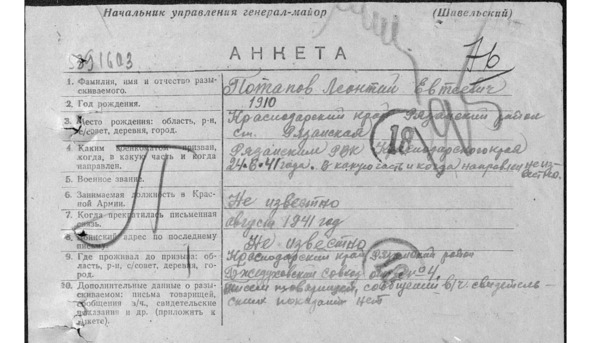 Начальник управления генерал-майор (Шавельский)
891603
АНКЕТА
76
1. Фамилия, имя и отчество разыскиваемого.
Потапов Леонтий Евтеевич
2. Год рождения.
1910
3. Место рождения: область, р-н, с/совет, деревня, город.
Краснодарский край Рязанский район
ст. Рязанская
18
4. Каким военкоматом призван, когда, в какую часть и когда направлен.
Рязанским РВК Краснодарского края
24.8.41 года. В какую часть и когда направлен неизвестно.
5. Военное звание.
6. Занимаемая должность в Красной Армии.
Не известно
7. Когда прекратилась письменная связь.
август 1941 год
8. Воинский адрес по последнему письму.
Не известно
9. Где проживал до призыва: область, р-н, с/совет, деревня, город.
Краснодарский край Рязанский район
совхоз
10. Дополнительные данные о разыскиваемом: письма товарищей, сообщения в/ч., свидетельские показания и др. (приложить к анкете).
писем товарищей, сообщений в/ч свидетельских показаний нет
П